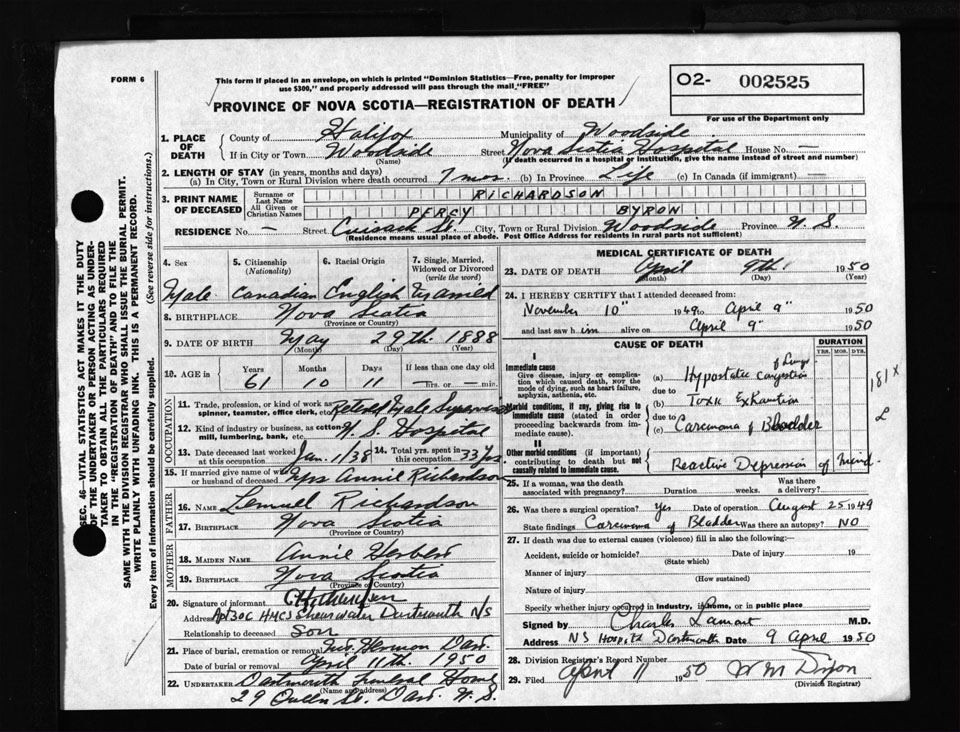 FORM 6
This form if placed in an envelope, on which is printed "Dominion Statistics—Free, penalty for improper
use $300," and properly addressed will pass through the mail "FREE"
O2- 002525
For use of the Department only
PROVINCE OF NOVA SCOTIA—REGISTRATION OF DEATH
SEC. 46—VITAL STATISTICS ACT MAKES IT THE DUTY
OF THE UNDERTAKER OR PERSON ACTING AS UNDER-
TAKER TO OBTAIN ALL THE PARTICULARS REQUIRED
IN THE "REGISTRATION OF DEATH" AND TO FILE THE
SAME WITH THE DIVISION REGISTRAR WHO SHALL ISSUE THE BURIAL PERMIT.
WRITE PLAINLY WITH UNFADING INK. THIS IS A PERMANENT RECORD.
Every item of information should be carefully supplied. (See reverse side for instructions.)
1. PLACE OF DEATH County of Halifax Municipality of Woodside
If in City or Town Woodside Street Nova Scotia Hospital House No. —
(Name) (If death occurred in a hospital or institution, give the name instead of street and number)
2. LENGTH OF STAY (in years, months and days)
(a) In City, Town or Rural Division where death occurred 7 mos. (b) In Province Life (c) In Canada (if immigrant) —
3. PRINT NAME OF DECEASED Surname or Last Name RICHARDSON
All Given or Christian Names PERCY BYRON
RESIDENCE No. — Street Cuisack St. City, Town or Rural Division Woodside Province N. S.
(Residence means usual place of abode. Post Office Address for residents in rural parts not sufficient)
4. Sex 5. Citizenship (Nationality) 6. Racial Origin 7. Single, Married, Widowed or Divorced (write the word)
Male Canadian English Married
8. BIRTHPLACE Nova Scotia
(Province or Country)
9. DATE OF BIRTH May 29th 1888
(Month) (Day) (Year)
10. AGE in Years Months Days If less than one day old
61 10 11 — hrs. or — min.
OCCUPATION
11. Trade, profession, or kind of work as spinner, teamster, office clerk, etc. Retired Male Supervisor
12. Kind of industry or business, as cotton mill, lumbering, bank, etc. N. S. Hospital
13. Date deceased last worked at this occupation Jan. 1/38 14. Total yrs. spent in this occupation 33 yrs
15. If married give name of wife or husband of deceased Mrs Annie Richardson
FATHER
16. NAME Lemuel Richardson
17. BIRTHPLACE Nova Scotia
(Province or Country)
MOTHER
18. MAIDEN NAME Annie
19. BIRTHPLACE Nova Scotia
(Province or Country)
20. Signature of informant
Address Apt 30C HMCS Shearwater Dartmouth N/S
Relationship to deceased Son
21. Place of burial, cremation or removal Mt. Hermon Dart.
Date of burial or removal April 11th. 1950
22. UNDERTAKER Dartmouth Funeral Home
(Name and address)
29 Queen St. Dart. N. S.
MEDICAL CERTIFICATE OF DEATH
23. DATE OF DEATH April 9th 1950
(Month) (Day) (Year)
24. I HEREBY CERTIFY that I attended deceased from:
November 10" 1949 to April 9" 1950
and last saw him alive on April 9" 1950
CAUSE OF DEATH
DURATION
YRS. MOS. DYS.
I
Immediate cause
Give disease, injury or complication which caused death, NOT the mode of dying, such as heart failure, asphyxia, asthenia, etc.
(a) Hypostatic Congestion of Lungs
due to
Morbid conditions, if any, giving rise to immediate cause (stated in order proceeding backwards from immediate cause).
Toxic Exhaustion
due to
(c) Carcinoma of Bladder
181 X
II
Other morbid conditions (if important) contributing to death but not causally related to immediate cause.
Reactive Depression of Mind.
25. If a woman, was the death associated with pregnancy? Duration weeks. Was there a delivery?
26. Was there a surgical operation? Yes Date of operation August 25 1949
State findings Carcinoma of Bladder Was there an autopsy? NO
27. If death was due to external causes (violence) fill in also the following:—
Accident, suicide or homicide? Date of injury 19
(State which)
Manner of injury
(How sustained)
Nature of injury
Specify whether injury occurred in industry, in home, or in public place
Signed by Charles Lamont M.D.
Address NS Hospital Dartmouth Date 9 April 1950
28. Division Registrar's Record Number
29. Filed April 11 1950 W M Dixon
(Division Registrar)